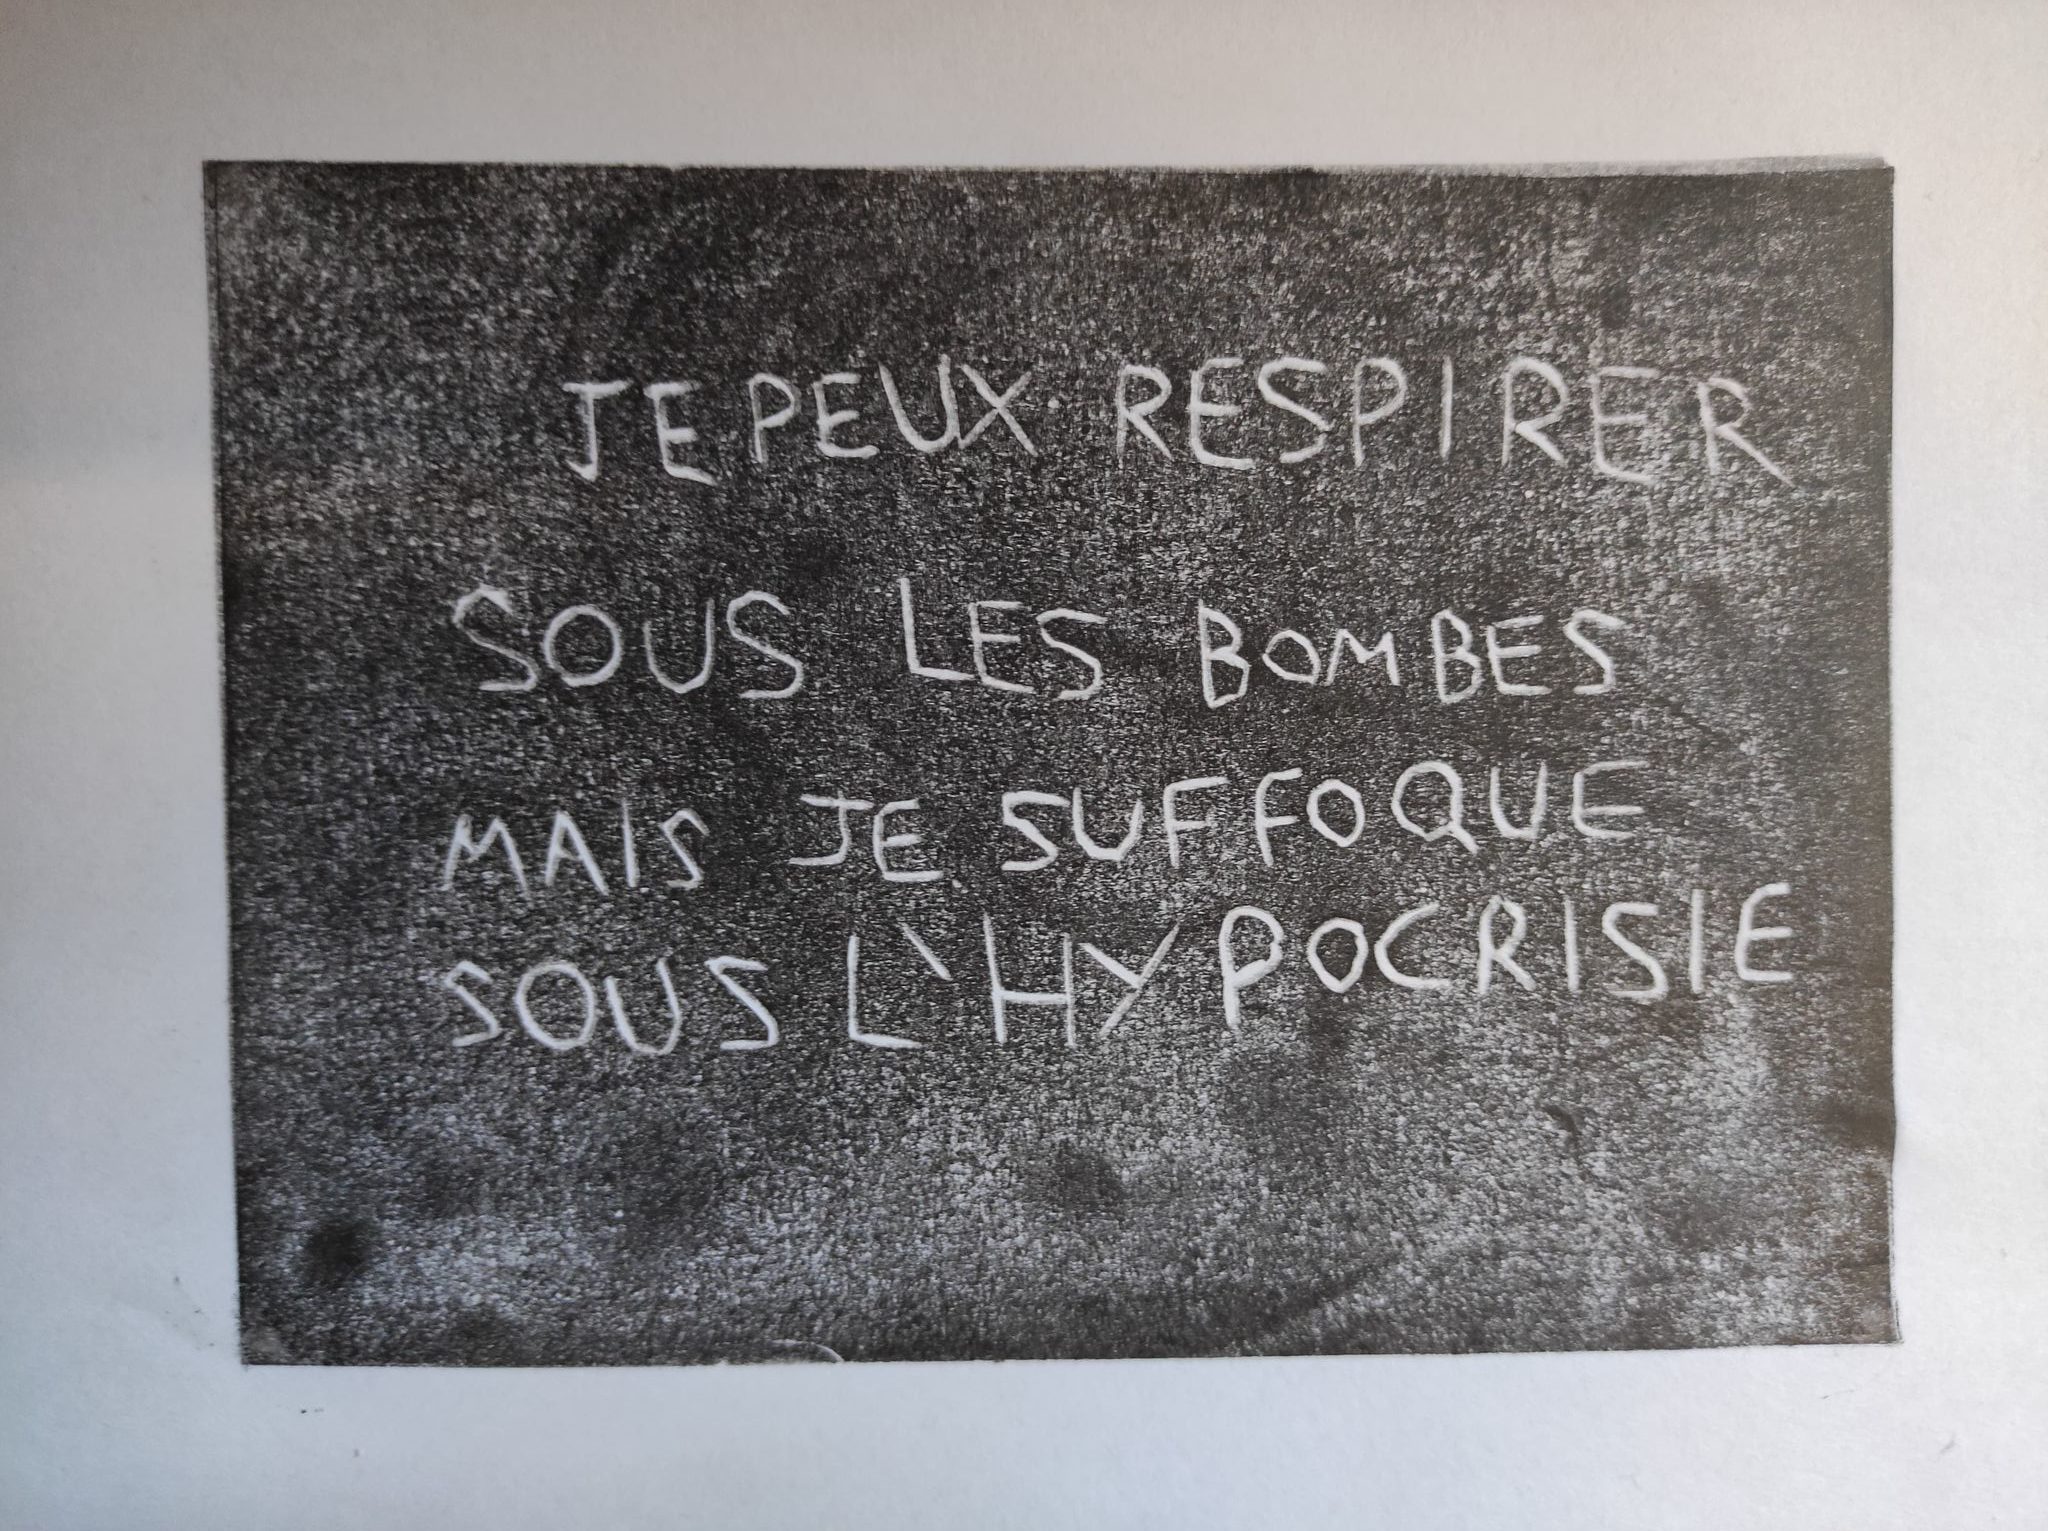 JE PEUX RESPIRER
SOUS LES BOMBES
MAIS JE SUFFOQUE
SOUS L'HYPOCRISIE